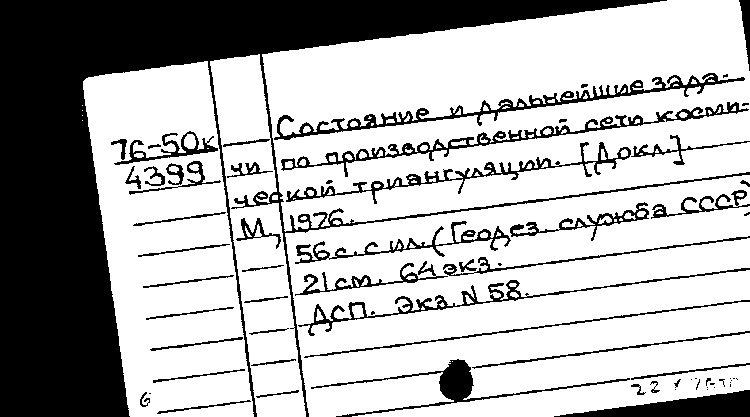 Состояние и дальнейшие зада-
76-50к
4399
чи по производственной сети косми-
ческой триангуляции. [Докл.].
М., 1976.
56 с. с ил. (Геодез. служба СССР)
21 см. 64 экз.
ДСП. Экз. N 58.
6